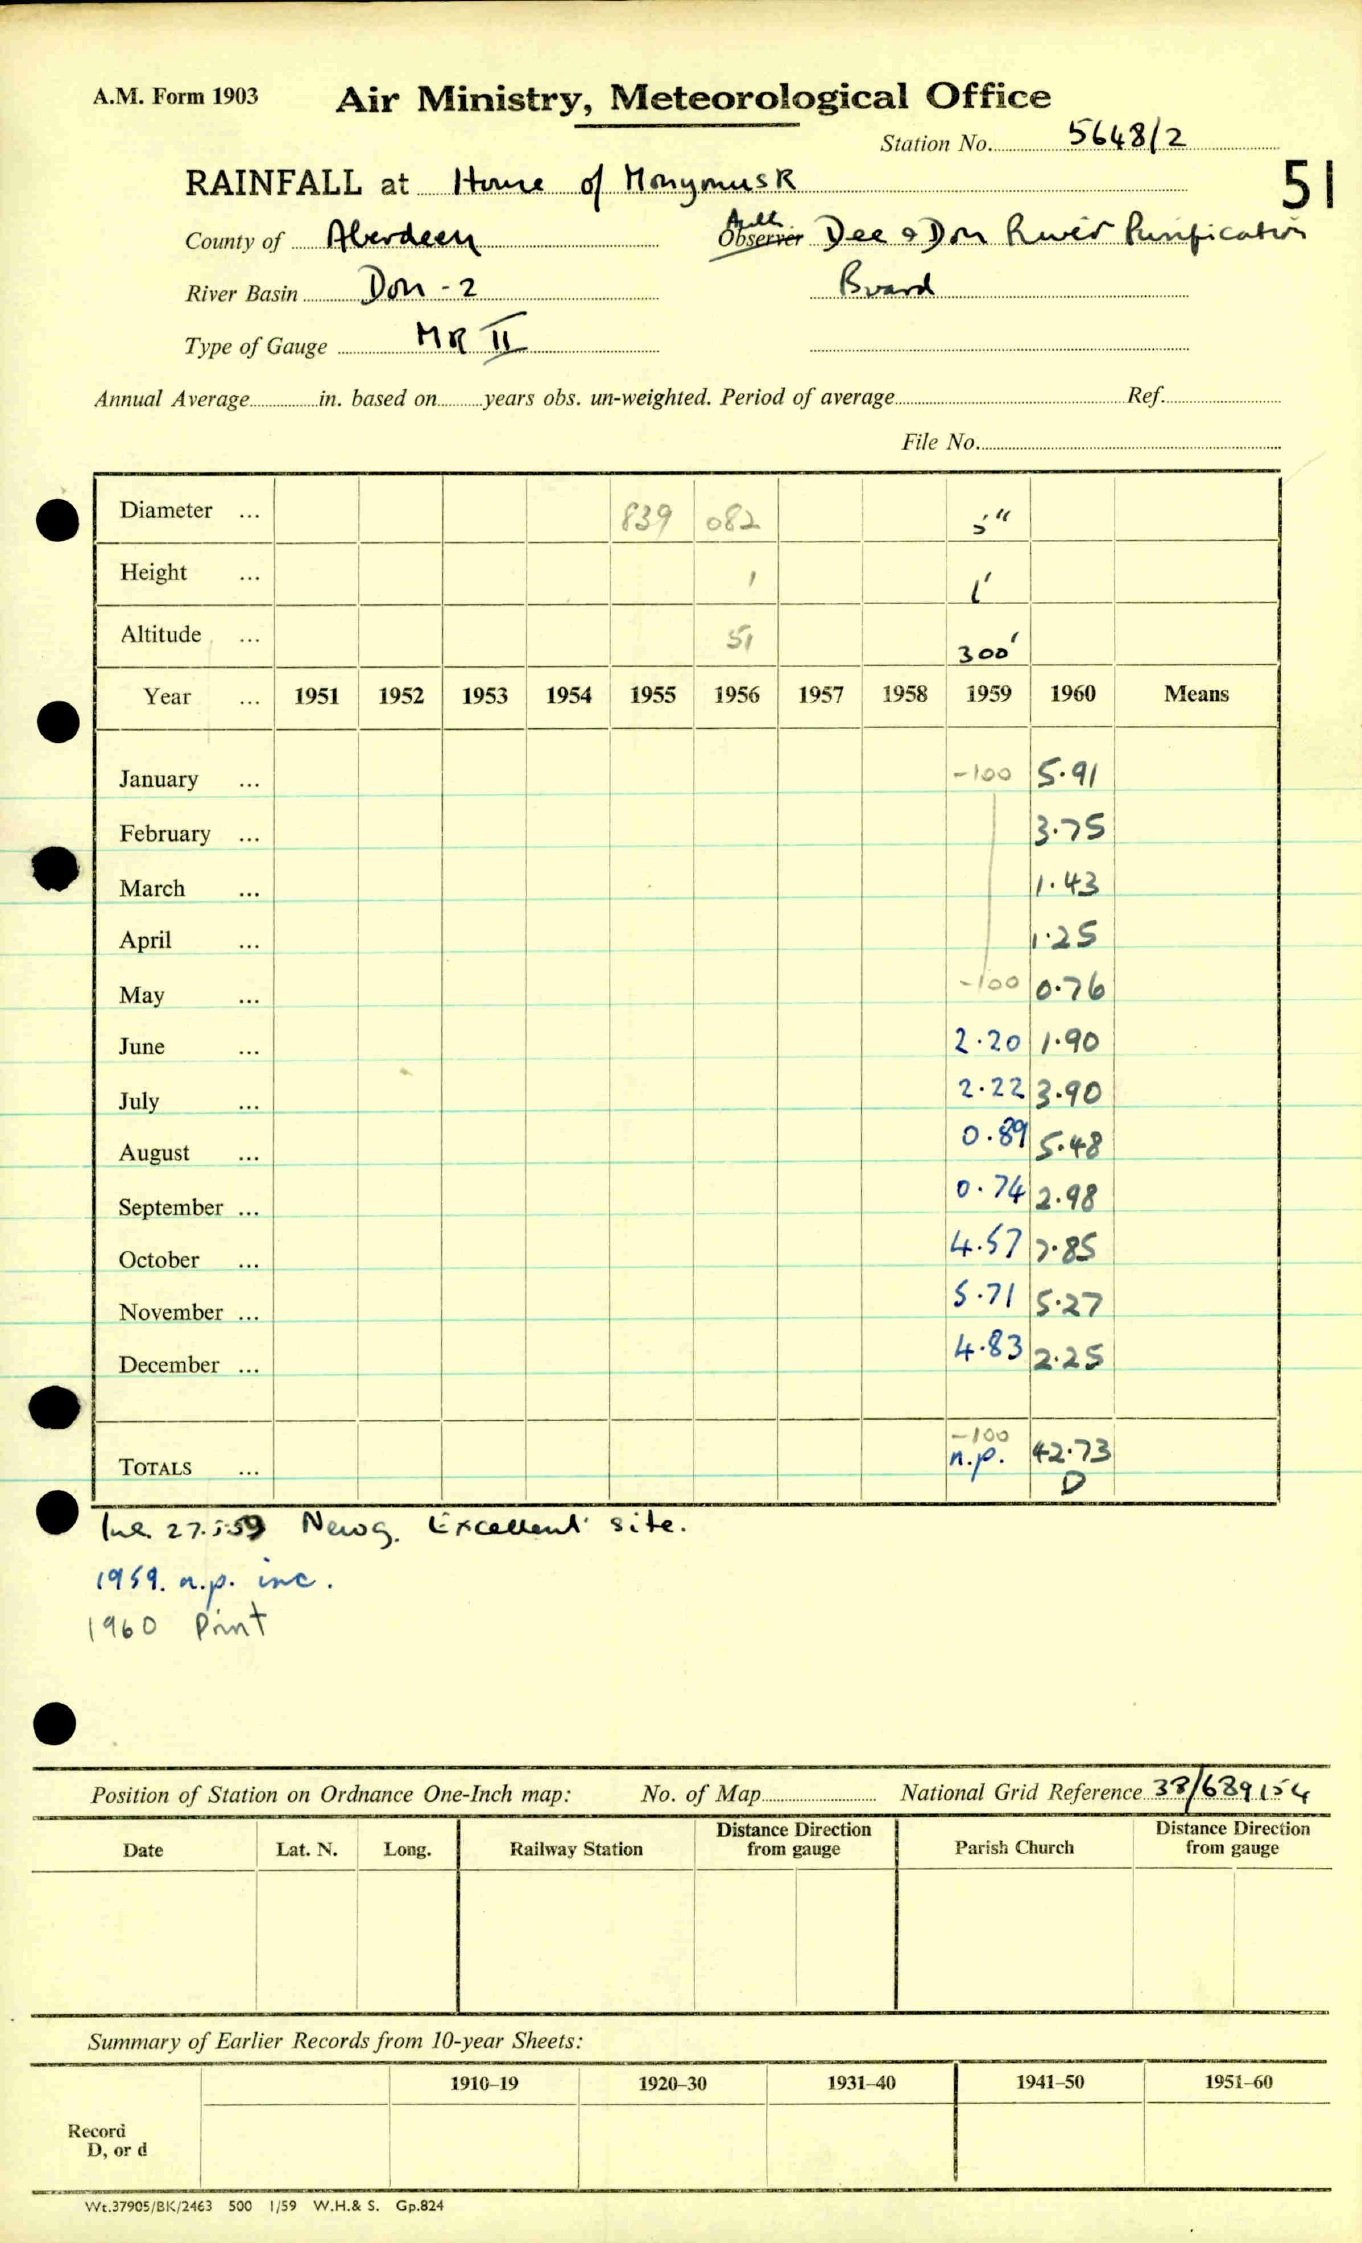 A.M. Form 1903 Air Ministry, Meteorological Office
Station No. 5648/2
51
RAINFALL at House of Monymusk
County of Aberdeen Auth Observer Dee & Don River Purification
River Basin Don - 2 Board
Type of Gauge MR II
Annual Average in. based on years obs. un-weighted. Period of average Ref.
File No.
Diameter ... 839 082 5"
Height ... 1 1'
Altitude ... 51 300'
Year ... 1951 1952 1953 1954 1955 1956 1957 1958 1959 1960 Means
January ... -100 5.91
February ... 3.75
March ... 1.43
April ... 1.25
May ... -100 0.76
June ... 2.20 1.90
July ... 2.22 3.90
August ... 0.89 5.48
September ... 0.74 2.98
October ... 4.57 7.85
November ... 5.71 5.27
December ... 4.83 2.25
-100
TOTALS ... n.p. 42.73
D
27.5.59 New g. Excellent site.
1959. n.p. inc.
1960 Print
Position of Station on Ordnance One-Inch map: No. of Map National Grid Reference 38/689154
Date Lat. N. Long. Railway Station Distance Direction from gauge Parish Church Distance Direction from gauge
Summary of Earlier Records from 10-year Sheets:
1910–19 1920–30 1931–40 1941–50 1951–60
Record
D, or d
Wt.37905/BK/2463 500 1/59 W.H.& S. Gp.824